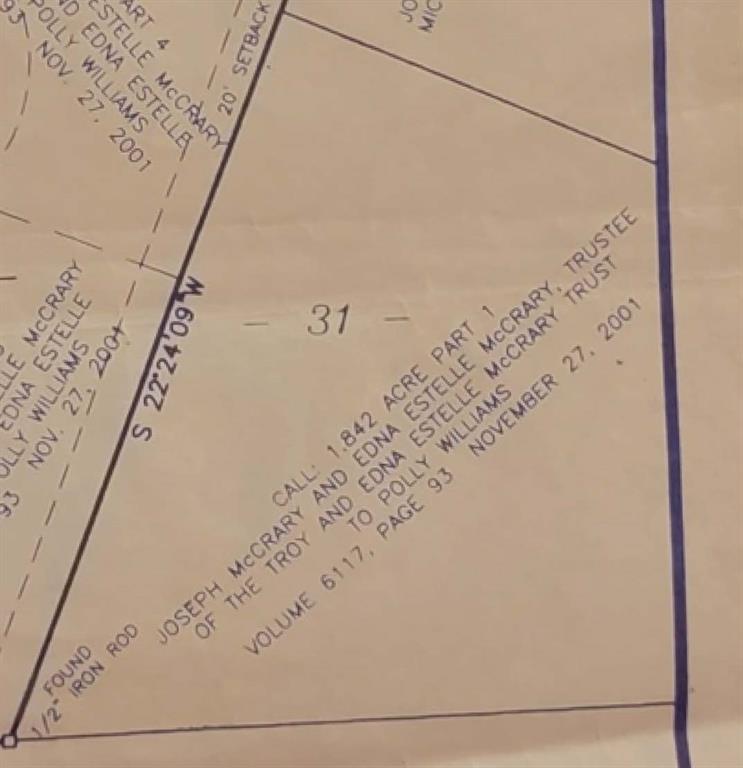 ART 4
ESTELLE McCRARY
ND EDNA ESTELLE
POLLY WILLIAMS
93 NOV. 27, 2001
20' SETBACK
JO
MIC
LLE McCRARY
EDNA ESTELLE
OLLY WILLIAMS
93 NOV. 27, 2001
S 22°24'09" W
- 31 -
CALL: 1.842 ACRE PART 1
JOSEPH McCRARY AND EDNA ESTELLE McCRARY, TRUSTEE
OF THE TROY AND EDNA ESTELLE McCRARY TRUST
TO POLLY WILLIAMS
VOLUME 6117, PAGE 93 NOVEMBER 27, 2001
FOUND
1/2" IRON ROD